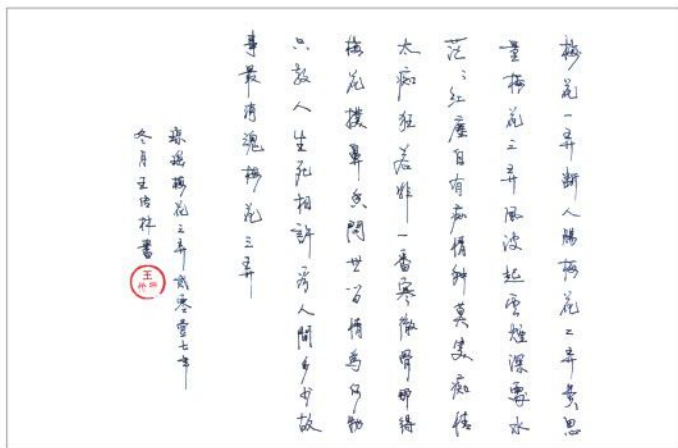 梅花一弄斷人腸梅花二弄費思
量梅花三弄風波起雲煙深處水
茫々紅塵自有痴情种莫笑痴情
太痴狂若非一番寒徹骨那得
梅花撲鼻香問世間情為何物
只教人生死相許看人間多少故
事最消魂梅花三弄
瓊瑤梅花三弄貳零壹七年
冬月王佶林書
王